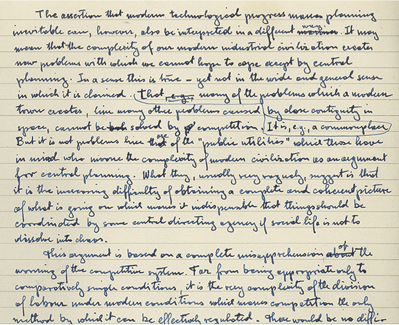 The assertion that modern technological progress makes planning
inevitable can, however, also be interpreted in a different manner. It may
mean that the complexity of our modern industrial civilization creates
new problems with which we cannot hope to cope except by central
planning. In a sense this is true – yet not in the wide and general sense
in which it is claimed. That, e.g., many of the problems which a modern
town creates, like many other problems caused by close contiguity in
space, cannot be solved by competition. It is, e.g., a commonplace
But it is not problems like of the "public utilities" which those have
in mind who invoke the complexity of modern civilization as an argument
for central planning. What they, usually very vaguely, suggest is that
it is the increasing difficulty of obtaining a complete and coherent picture
of what is going on which makes it indispensable that things should be
coordinated by some central directing agency if social life is not to
dissolve into chaos.
This argument is based on a complete misapprehension about of the
working of the competitive system. Far from being appropriate only to
comparatively simple conditions, it is the very complexity of the division
of labour under modern conditions which makes competition the only
method by which it can be effectively regulated. There would be no diffi-